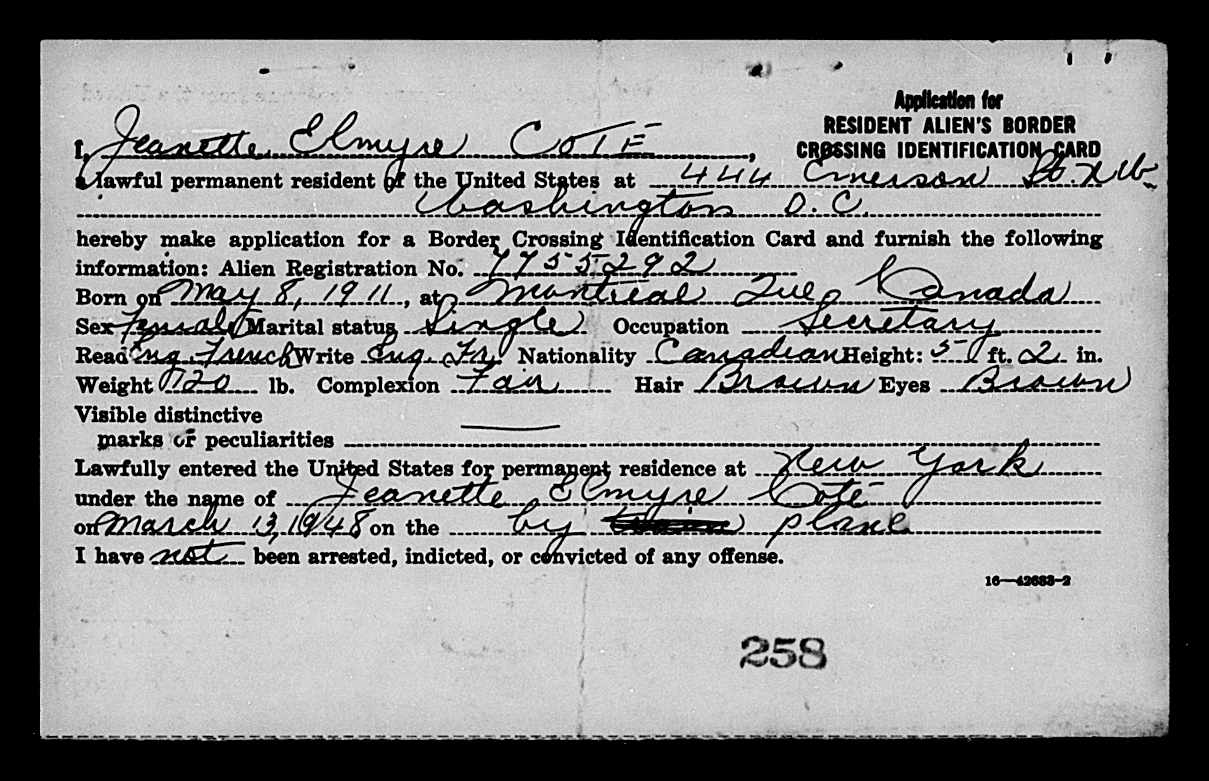 Application for
RESIDENT ALIEN'S BORDER
CROSSING IDENTIFICATION CARD
I, Jeanette Elmyre COTÉ,
a lawful permanent resident of the United States at 444 Emerson St. N.W.
Washington D.C.
hereby make application for a Border Crossing Identification Card and furnish the following
information: Alien Registration No. 7755292
Born on May 8, 1911, at Montreal Que, Canada
Sex Female Marital status Single Occupation Secretary
Read Eng. French Write Eng. Fr. Nationality Canadian Height: 5 ft. 2 in.
Weight 120 lb. Complexion Fair Hair Brown Eyes Brown
Visible distinctive
marks or peculiarities
Lawfully entered the United States for permanent residence at New York
under the name of Jeanette Elmyre Coté
on March 13, 1948 on the by plane
I have not been arrested, indicted, or convicted of any offense.
16—42683-2
258